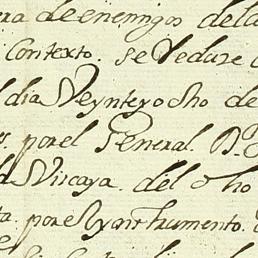 ra de enemigos de la
Contexto. se deduze
dia Veynte y ocho de
por el General. D.
Viscaya. del dho
por el Ynstrumento.